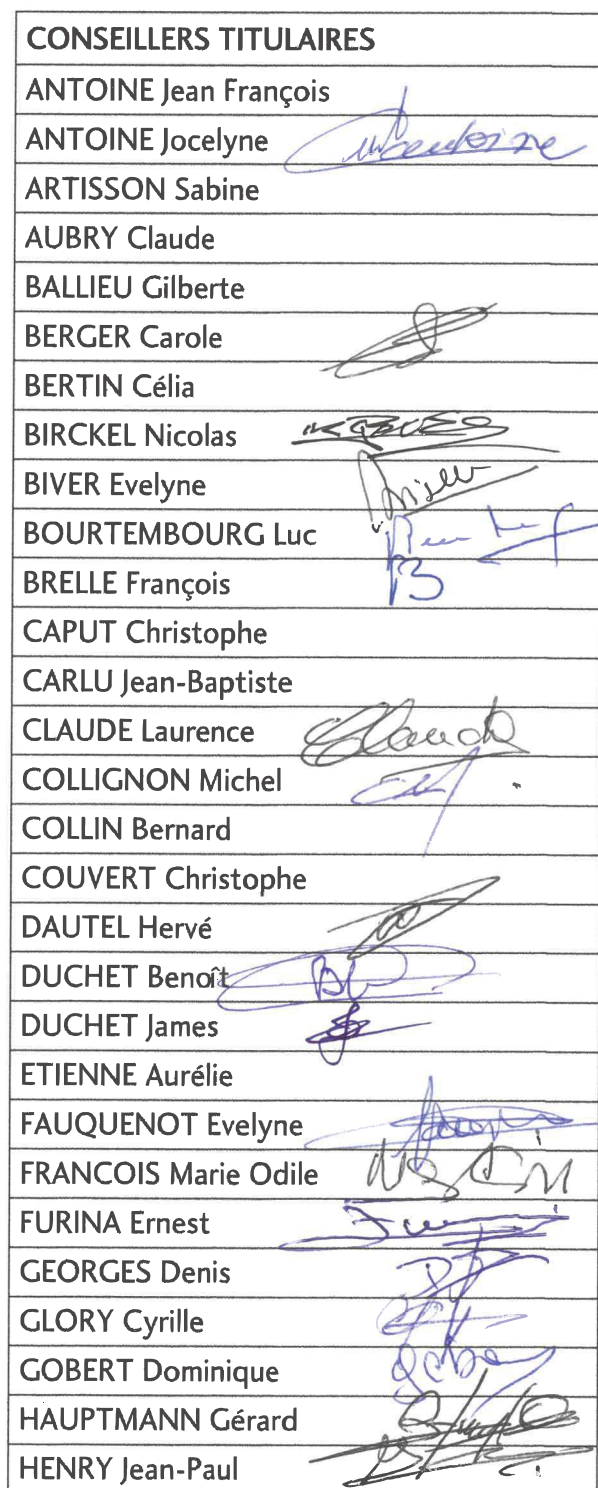 CONSEILLERS TITULAIRES
ANTOINE Jean François
ANTOINE Jocelyne
ARTISSON Sabine
AUBRY Claude
BALLIEU Gilberte
BERGER Carole
BERTIN Célia
BIRCKEL Nicolas
BIVER Evelyne
BOURTEMBOURG Luc
BRELLE François
CAPUT Christophe
CARLU Jean-Baptiste
CLAUDE Laurence
COLLIGNON Michel
COLLIN Bernard
COUVERT Christophe
DAUTEL Hervé
DUCHET Benoît
DUCHET James
ETIENNE Aurélie
FAUQUENOT Evelyne
FRANCOIS Marie Odile
FURINA Ernest
GEORGES Denis
GLORY Cyrille
GOBERT Dominique
HAUPTMANN Gérard
HENRY Jean-Paul